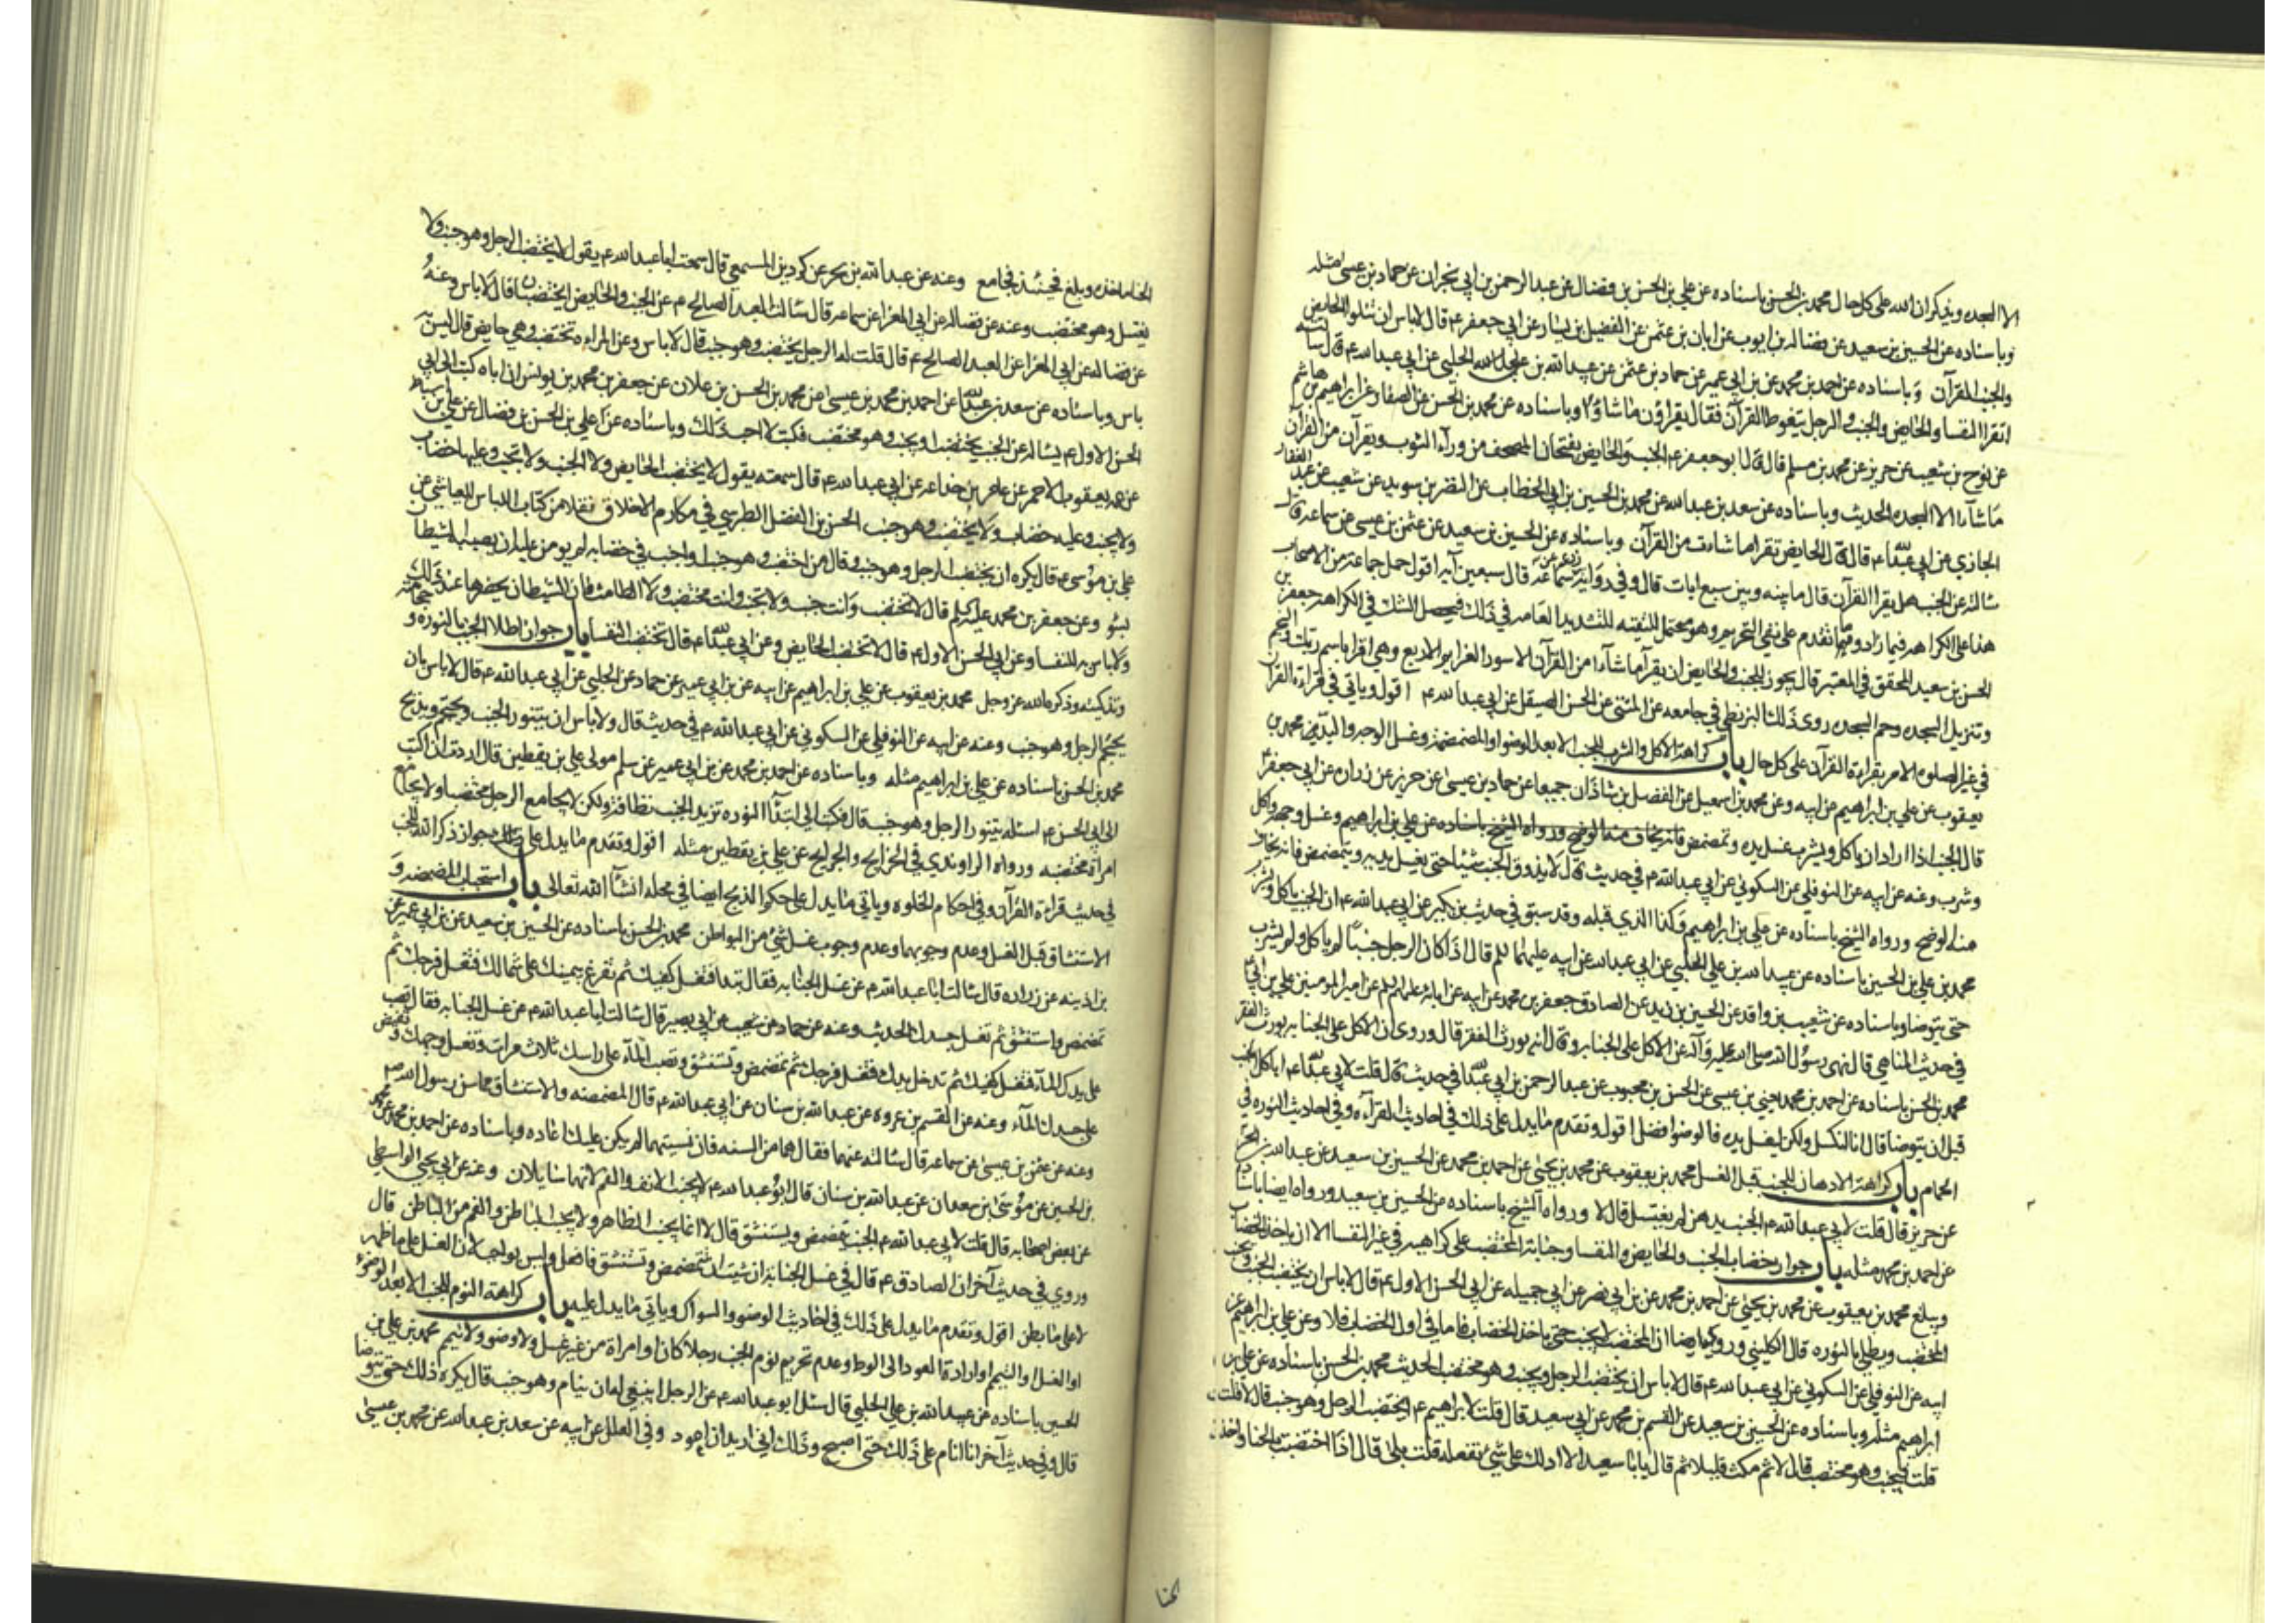 الا السجده ويذكران الله على كل حال محمد بن الحسن باسناده عن علي بن الحسن بن فضال عن عبد الرحمن بن ابي نجران عن حماد بن عيسى مثله
وباسناده عن الحسين بن سعيد عن فضاله بن ايوب عن ابان بن عثمن عن الفضيل بن يسار عن ابي جعفر ع قال لا باس ان تتلوا الحايض
والجنب القرآن وباسناده عن احمد بن محمد عن بن ابي عمير عن حماد بن عثمن عن عبيد الله بن علي الحلبي عن ابي عبد الله ع قال سالته
اتقرا النفسا والحايض والجنب والرجل يتغوط القرآن فقال يقراون ماشاؤا وباسناده عن محمد بن الحسن عن الصفار عن ابراهيم بن هاشم
عن نوح بن شعيب عن حريز عن محمد بن مسلم قال قال ابو جعفر ع الجنب والحايض يفتحان المصحف من ورآء الثوب ويقرآن من القرآن
ماشاءا الا السجده الحديث وباسناده عن سعد بن عبد الله عن محمد بن الحسين بن ابي الخطاب عن النضر بن سويد عن شعيب عن عبد الغفار
الجازي عن ابي عبد الله ع قال قال الحايض تقرا ماشاءت من القرآن وباسناده عن الحسين بن سعيد عن عثمن بن عيسى عن سماعه قال
سالته عن الجنب هل يقرا القرآن قال مابينه وبين سبع ايات قال وفي رواية زرعه عن سماعه قال سبعين آيه اقول حمل جماعه من الاصحاب
هذا على الكراهه فيما زاد وما تقدم على نفي التحريم وهو محتمل للتقيه للتشديد العامه في ذلك فيحصل الشك في الكراهه جعفر بن
الحسن بن سعيد المحقق في المعتبر قال يجوز للجنب والحايض ان يقرآ ماشاءا من القرآن الا سور العزايم الاربع وهي اقرا باسم ربك والنجم
وتنزيل السجده وحم السجده روى ذلك البزنطي في جامعه عن المثنى عن الحسن الصيقل عن ابي عبد الله ع اقول وياتي في قراءة القرآن
في غير الصلوه الامر بقراءة القرآن على كل حال باب كراهة الاكل والشرب للجنب الا بعد الوضوء او المضمضه وغسل الوجه واليدين محمد بن
يعقوب عن علي بن ابراهيم عن ابيه وعن محمد بن اسمعيل عن الفضل بن شاذان جميعا عن حماد بن عيسى عن حريز عن زراره عن ابي جعفر ع
قال الجنب اذا اراد ان ياكل ويشرب غسل يده وتمضمض وغسل وجهه واكل
وشرب وعنه عن ابيه عن النوفلي عن السكوني عن ابي عبد الله ع في حديث قال لا يذوق الجنب شيئا حتى يغسل يديه ويتمضمض فانه يخاف
منه الوضح ورواه الشيخ باسناده عن علي بن ابراهيم وكذا الذي قبله وقد سبق في حديث بن بكير عن ابي عبد الله ع ان الجنب ياكل ويشرب
محمد بن علي بن الحسين باسناده عن عبيد الله بن علي الحلبي عن ابي عبد الله عن ابيه عليهما السلم قال اذا كان الرجل جنبا لم ياكل ولم يشرب
حتى يتوضا وباسناده عن شعيب بن واقد عن الحسين بن زيد عن الصادق جعفر بن محمد عن ابيه عن ابائه عليهم السلم عن امير المومنين علي بن ابي
في حديث المناهي قال نهى رسول الله صلى الله عليه وآله عن الاكل على الجنابه وقال انه يورث الفقر قال وروي ان الاكل على الجنابه يورث الفقر
محمد بن الحسن باسناده عن احمد بن محمد يعني بن عيسى عن الحسن بن محبوب عن عبد الرحمن بن ابي عبد الله في حديث قال قلت لابي عبد الله ع اياكل الجنب
قبل ان يتوضا قال انا لنكسل ولكن ليغسل يده فالوضوا فضل اقول وتقدم مايدل على ذلك في احاديث القرآءه وفي احاديث النوره في
الحمام باب كراهة الادهان للجنب قبل الغسل محمد بن يعقوب عن محمد بن يحيى عن احمد بن محمد عن الحسين بن سعيد عن عبد الله بن بحر
عن حريز قال قلت لابي عبد الله ع الجنب يدهن ثم يغتسل قال لا ورواه الشيخ باسناده عن الحسين بن سعيد ورواه ايضا باسناده
عن احمد بن محمد مثله باب جواز خضاب الجنب والحايض والنفسا وجنابة المختضب على كراهيه في غير النفسا الا ان ياخذ الخضاب
ويبلغ محمد بن يعقوب عن محمد بن يحيى عن احمد بن محمد عن بن ابي نصر عن ابي جميله عن ابي الحسن الاول ع قال لا باس ان يختضب الجنب ويجنب
المختضب ويطلي بالنوره قال الكليني وروي ايضا ان المختضب لا يجنب حتى ياخذ الخضاب فاما في اول الخضاب فلا وعن علي بن ابراهيم عن
ابيه عن النوفلي عن السكوني عن ابي عبد الله ع قال لا باس ان يختضب الرجل ويجنب وهو مختضب الحديث محمد بن الحسن باسناده عن علي بن
ابراهيم مثله وباسناده عن الحسين بن سعيد عن القسم بن محمد عن ابي سعيد قال قلت لابي ابراهيم ع ايختضب الرجل وهو جنب قال لا قلت
قلت فيجنب وهو مختضب قال لا ثم مكث قليلا ثم قال يابا سعيد الا ادلك على شي تفعله قلت بلى قال اذا اختضبت بالحنا واخذ
الحنا ماخذه وبلغ فحينئذ فجامع وعنه عن عبد الله بن بحر عن كردين المسمعي قال سمعت ابا عبد الله ع يقول لا يختضب الرجل وهو جنب ولا
يغتسل وهو مختضب وعنه عن فضاله عن ابي المعزا عن سماعه قال سالت العبد الصالح ع عن الجنب والحايض ايختضبان قال لا باس وعنه
عن فضاله عن ابي المعزا عن العبد الصالح ع قال قلت له الرجل يختضب وهو جنب قال لا باس وعن المراه تختضب وهي حايض قال ليس به
باس وباسناده عن سعد بن عبد الله عن احمد بن محمد بن عيسى عن محمد بن الحسن بن علان عن جعفر بن محمد بن يونس ان اباه كتب الى ابي
الحسن الاول ع يساله عن الجنب يختضب او يجنب وهو مختضب فكتب لا احب ذلك وباسناده عن علي بن الحسن بن فضال عن علي بن اسباط
عن عمه يعقوب الاحمر عن عامر بن جذاعه عن ابي عبد الله ع قال سمعته يقول لا يختضب الحايض ولا الجنب ولا تجنب وعليها خضاب
ولا يجنب وعليه خضاب ولا يختضب وهو جنب الحسن بن الفضل الطبرسي في مكارم الاخلاق نقلا من كتاب اللباس للعياشي عن
علي بن موسى ع قال يكره ان يختضب الرجل وهو جنب وقال من اختضب وهو جنب او اجنب في خضابه لم يومن عليه ان يصيبه الشيطان
بسوء وعن جعفر بن محمد عليه السلم قال لا تختضب وانت جنب ولا تجنب وانت مختضب ولا الطامث فان الشيطان يحضرها عند ذلك
ولا باس به للنفسا وعن ابي الحسن الاول ع قال لا تختضب الحايض وعن ابي عبد الله ع قال تختضب النفسا باب جواز اطلاء الجنب بالنوره وحجامته
وتذكيته وذكره الله عز وجل محمد بن يعقوب عن علي بن ابراهيم عن ابيه عن بن ابي عمير عن حماد عن الحلبي عن ابي عبد الله ع قال لا باس بان
يحتجم الرجل وهو جنب وعنه عن ابيه عن النوفلي عن السكوني عن ابي عبد الله ع في حديث قال ولا باس ان يتنور الجنب ويحتجم ويذبح
محمد بن الحسن باسناده عن علي بن ابراهيم مثله وباسناده عن احمد بن محمد عن بن ابي عمير عن سلم مولى علي بن يقطين قال اردت ان اكتب
الى ابي الحسن ع اسئله يتنور الرجل وهو جنب قال فكتب الي ابتدآا النوره تزيد الجنب نظافة ولكن لا يجامع الرجل مختضبا ولا يجامع
امراة مختضبه ورواه الراوندي في الخرايج والجرايح عن علي بن يقطين مثله اقول وتقدم مايدل على جواز ذكر الله للجنب
في حديث قراءة القرآن وفي احكام الخلوه وياتي مايدل على حكم الذبح ايضا في محله انشآ الله تعالى باب استحباب المضمضه و
الاستنشاق قبل الغسل وعدم وجوبهما وعدم وجوب غسل شي من البواطن محمد بن الحسن باسناده عن الحسين بن سعيد عن بن ابي عمير عن
بن اذينه عن زراره قال سالت ابا عبد الله ع عن غسل الجنابه فقال تبدا فتغسل كفيك ثم تفرغ بيمينك على شمالك فتغسل فرجك ثم
تمضمض واستنشق ثم تغسل جسدك الحديث وعنه عن حماد عن شعيب عن ابي بصير قال سالت ابا عبد الله ع عن غسل الجنابه فقال تصب
على يديك المآء فتغسل كفيك ثم تدخل يدك فتغسل فرجك ثم تمضمض وتستنشق وتصب المآء على راسك ثلاث مرات وتغسل وجهك وتفيض
على جسدك المآء وعنه عن القسم بن عروه عن عبد الله بن سنان عن ابي عبد الله ع قال المضمضه والاستنشاق مما سن رسول الله ص
وعنه عن عثمن بن عيسى عن سماعه قال سالته عنهما فقال هما من السنه فان نسيتهما لم يكن عليك اعاده وباسناده عن احمد بن محمد عن
بن الحسين عن موسى بن سعدان عن عبد الله بن سنان قال ابو عبد الله ع لا يجنب الانف والفم لانهما سايلان وعنه عن ابي يحيى الواسطي
عن بعض اصحابه قال قلت لابي عبد الله ع الجنب يتمضمض ويستنشق قال لا انما يجنب الظاهر ولا يجنب الباطن والفم من الباطن قال
وروي في حديث آخر ان الصادق ع قال في غسل الجنابه ان شيت ان تتمضمض وتستنشق فافعل وليس بواجب لان الغسل على ماظهر
لا على مابطن اقول وتقدم مايدل على ذلك في احاديث الوضوء والسواك وياتي مايدل عليه باب كراهة النوم للجنب الا بعد الوضوء
او الغسل او التيمم او ارادة العود الى الوطء وعدم تحريم نوم الجنب رجلا كان او امراة من غير غسل ولا وضوء ولا تيمم محمد بن علي بن
الحسين باسناده عن عبيد الله بن علي الحلبي قال سئل ابو عبد الله ع عن الرجل اينبغي له ان ينام وهو جنب قال يكره ذلك حتى يتوضا
قال وفي حديث آخر انا انام على ذلك حتى اصبح وذلك اني اريد ان اعود وفي العلل عن ابيه عن سعد بن عبد الله عن محمد بن عيسى
الحنا